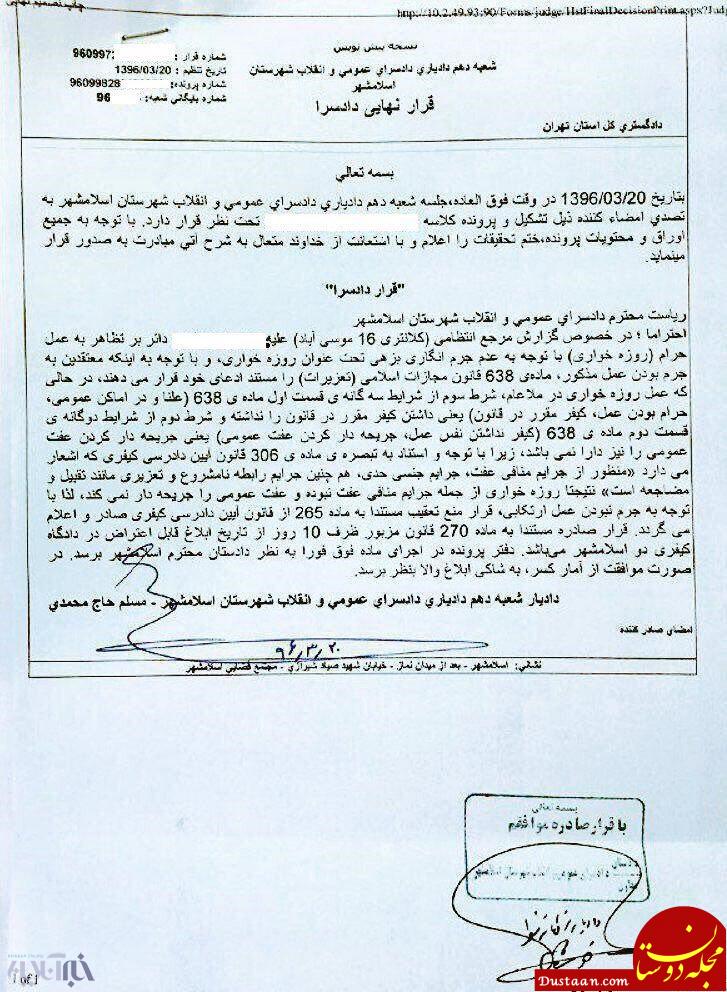 چاپ تصمیم نهایی
http://10.2.49.93:90/Forms/judge/HstFinalDecisionPrint.aspx?Jud
نسخه پیش نویس
شعبه دهم دادیاري دادسراي عمومي و انقلاب شهرستان
اسلامشهر
قرار نهایی دادسرا
شماره قرار : 960997
تاریخ تنظیم : 1396/03/20
شماره پرونده: 96099828
شماره بایگاني شعبه: 96
دادگستري کل استان تهران
بسمه تعالي
بتاریخ 1396/03/20 در وقت فوق العاده،جلسه شعبه دهم دادیاري دادسراي عمومي و انقلاب شهرستان اسلامشهر به
تصدي امضاء کننده ذیل تشکیل و پرونده کلاسه تحت نظر قرار دارد. با توجه به جمیع
اوراق و محتویات پرونده،ختم تحقیقات را اعلام و با استعانت از خداوند متعال به شرح آتي مبادرت به صدور قرار
مینماید.
"قرار دادسرا"
ریاست محترم دادسراي عمومي و انقلاب شهرستان اسلامشهر
احتراما ؛ در خصوص گزارش مرجع انتظامی (کلانتری 16 موسی آباد) علیه دائر بر تظاهر به عمل
حرام (روزه خواری) با توجه به عدم جرم انگاری بزهی تحت عنوان روزه خواری، و با توجه به اینکه معتقدین به
جرم بودن عمل مذکور، ماده‌ی 638 قانون مجازات اسلامی (تعزیرات) را مستند ادعای خود قرار می دهند، در حالی
که عمل روزه خواری در ملاعام، شرط سوم از شرایط سه گانه ی قسمت اول ماده ی 638 (علنا و در اماکن عمومی،
حرام بودن عمل، کیفر مقرر در قانون) یعنی داشتن کیفر مقرر در قانون را نداشته و شرط دوم از شرایط دوگانه ی
قسمت دوم ماده ی 638 (کیفر نداشتن نفس عمل، جریحه دار کردن عفت عمومی) یعنی جریحه دار کردن عفت
عمومی را نیز دارا نمی باشد، زیرا با توجه و استناد به تبصره ی ماده ی 306 قانون آیین دادرسی کیفری که اشعار
می دارد «منظور از جرایم منافی عفت، جرایم جنسی حدی، هم چنین جرایم رابطه نامشروع و تعزیری مانند تقبیل و
مضاجعه است» نتیجتا روزه خواری از جمله جرایم منافی عفت نبوده و عفت عمومی را جریحه دار نمی کند، لذا با
توجه به جرم نبودن عمل ارتکابی، قرار منع تعقیب مستندا به ماده 265 از قانون آیین دادرسی کیفری صادر و اعلام
می گردد. قرار صادره مستندا به ماده 270 قانون مزبور ظرف 10 روز از تاریخ ابلاغ قابل اعتراض در دادگاه
کیفری دو اسلامشهر می‌باشد. دفتر پرونده در اجرای ماده فوق فورا به نظر دادستان محترم اسلامشهر برسد. در
صورت موافقت از آمار کسر، به شاکی ابلاغ والا بنظر برسد.
دادیار شعبه دهم دادیاري دادسراي عمومي و انقلاب شهرستان اسلامشهر - مسلم حاج محمدي
امضاي صادر کننده
۹۶٫۳٫۲۰
نشاني: اسلامشهر - بعد از میدان نماز - خیابان شهید صیاد شیرازي - مجتمع قضایي اسلامشهر
بسمه تعالی
با قرار صادره موافقم
دادستان
دادسرای عمومی و انقلاب شهرستان اسلامشهر
1 of 1
خبرآنلاین
مجله دوستان
Dustaan.com